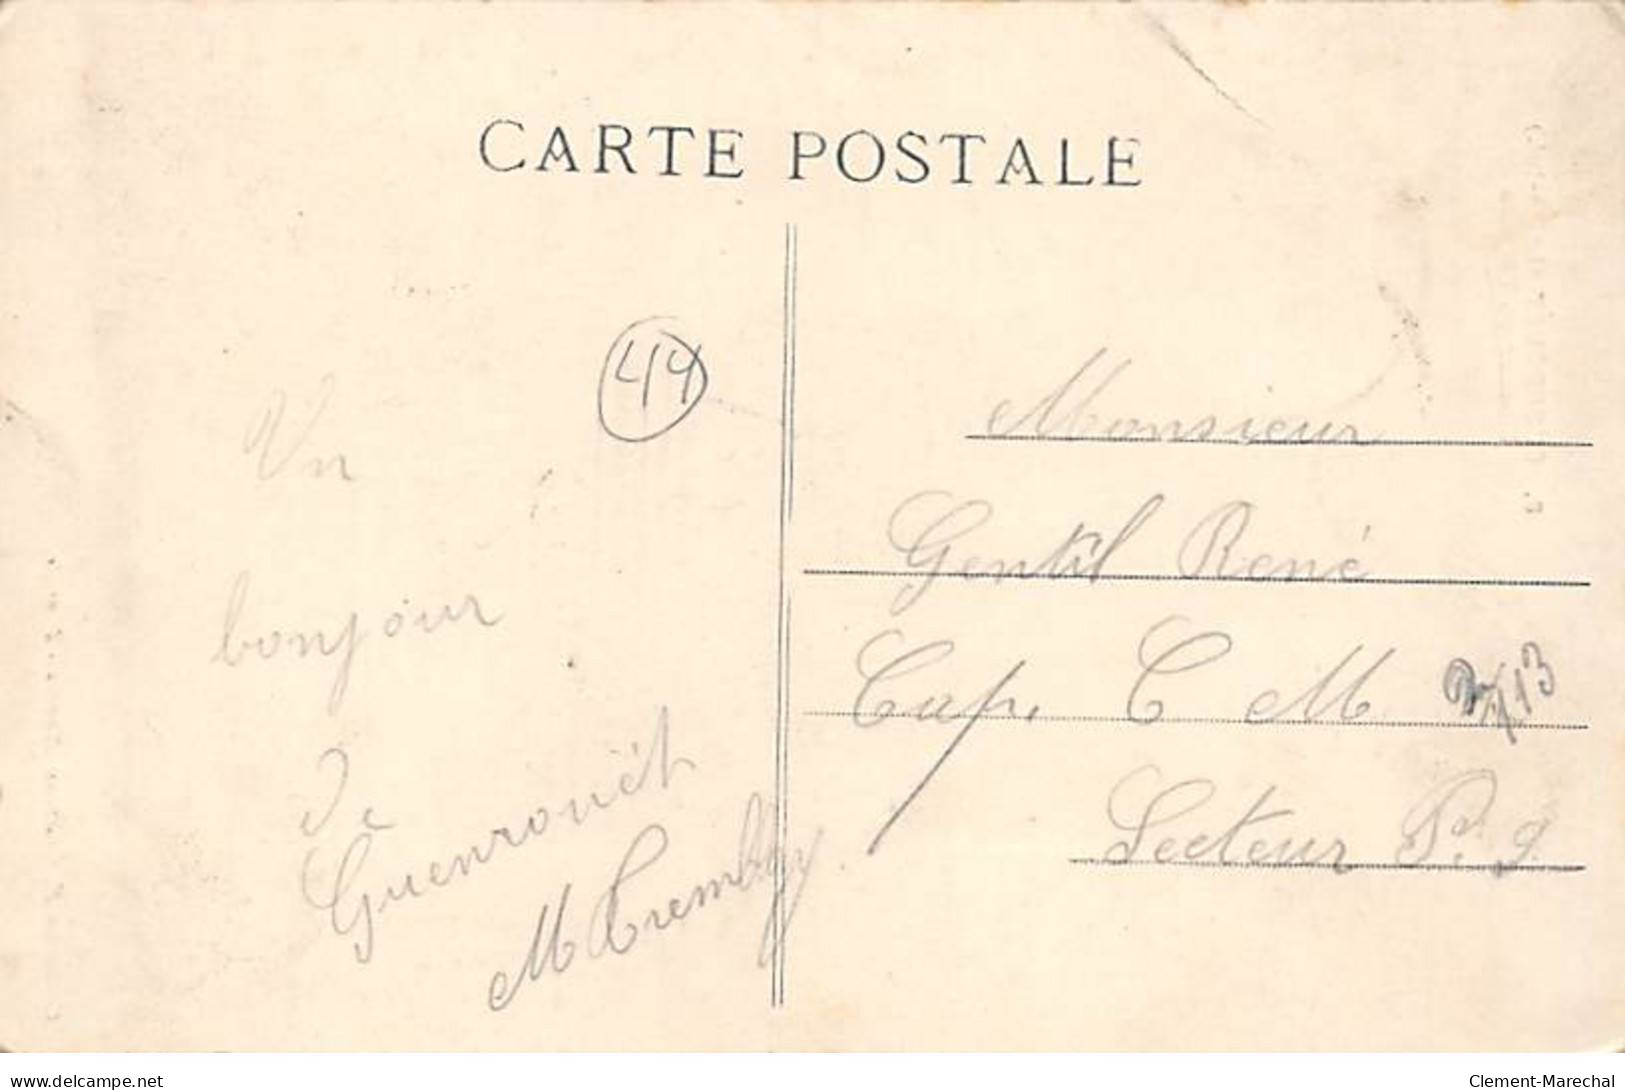 CARTE POSTALE
44
Un
bonjour
de
Guenrouët
M Tremblay
Monsieur
Gentil René
Cap. C M
Secteur P. 9
delcampe.net
Clement-Marechal